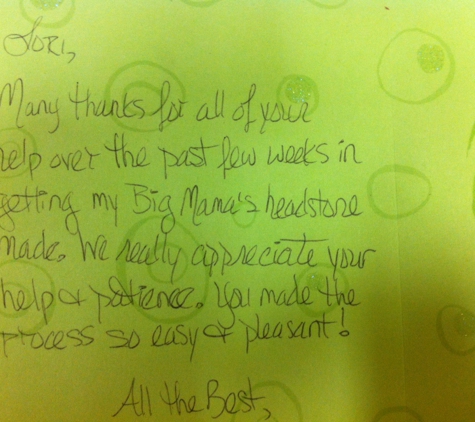 Lori,
Many thanks for all of your
help over the past few weeks in
getting my Big Mama's headstone
made. We really appreciate your
help & patience. You made the
process so easy & pleasant!
All the Best,